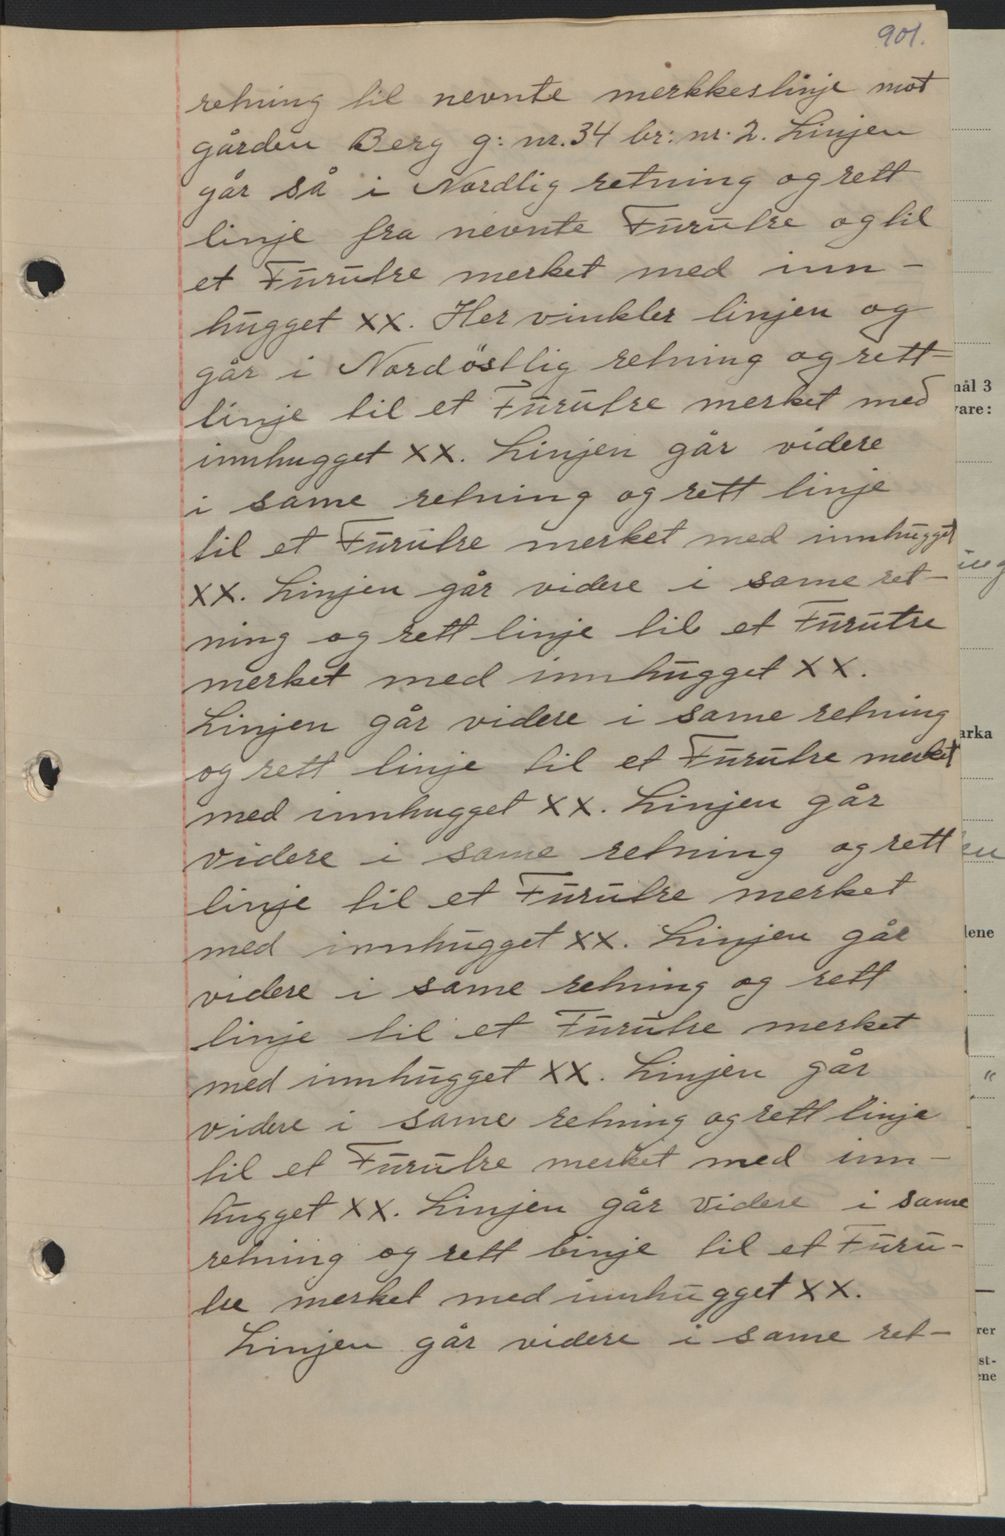 901.
retning til nevnte merkkeslinje mot
gården Berg g: nr. 34 br: nr. 2. Linjen
går så i Nordlig retning og rett
linje fra nevnte Furutre og til
et Furutre merket med inn-
hugget XX. Her vinkler linjen og
går i Nordöstlig retning og rett-
linje til et Furutre merket med
innhugget XX. Linjen går videre
i same retning og rett linje
til et Furutre merket med innhugget
XX. Linjen går videre i same ret-
ning og rett linje til et Furutre
merket med innhugget XX.
Linjen går videre i same retning
og rett linje til et Furutre merket
med innhugget XX. Linjen går
videre i same retning og rett
linje til et Furutre merket
med innhugget XX. Linjen går
videre i same retning og rett
linje til et Furutre merket
med innhugget XX. Linjen går
videre i same retning og rett linje
til et Furutre merket med inn-
hugget XX. Linjen går videre i same
retning og rett linje til et Furu-
tre merket med innhugget XX.
Linjen går videre i same ret-
nål 3
vare:
arka
lene
"
rer
st-
ene